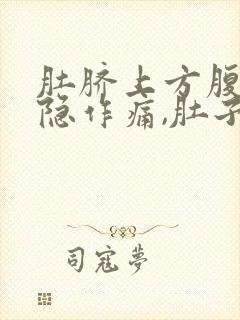 肚脐上方腹
隐作痛,肚子
司寇夢